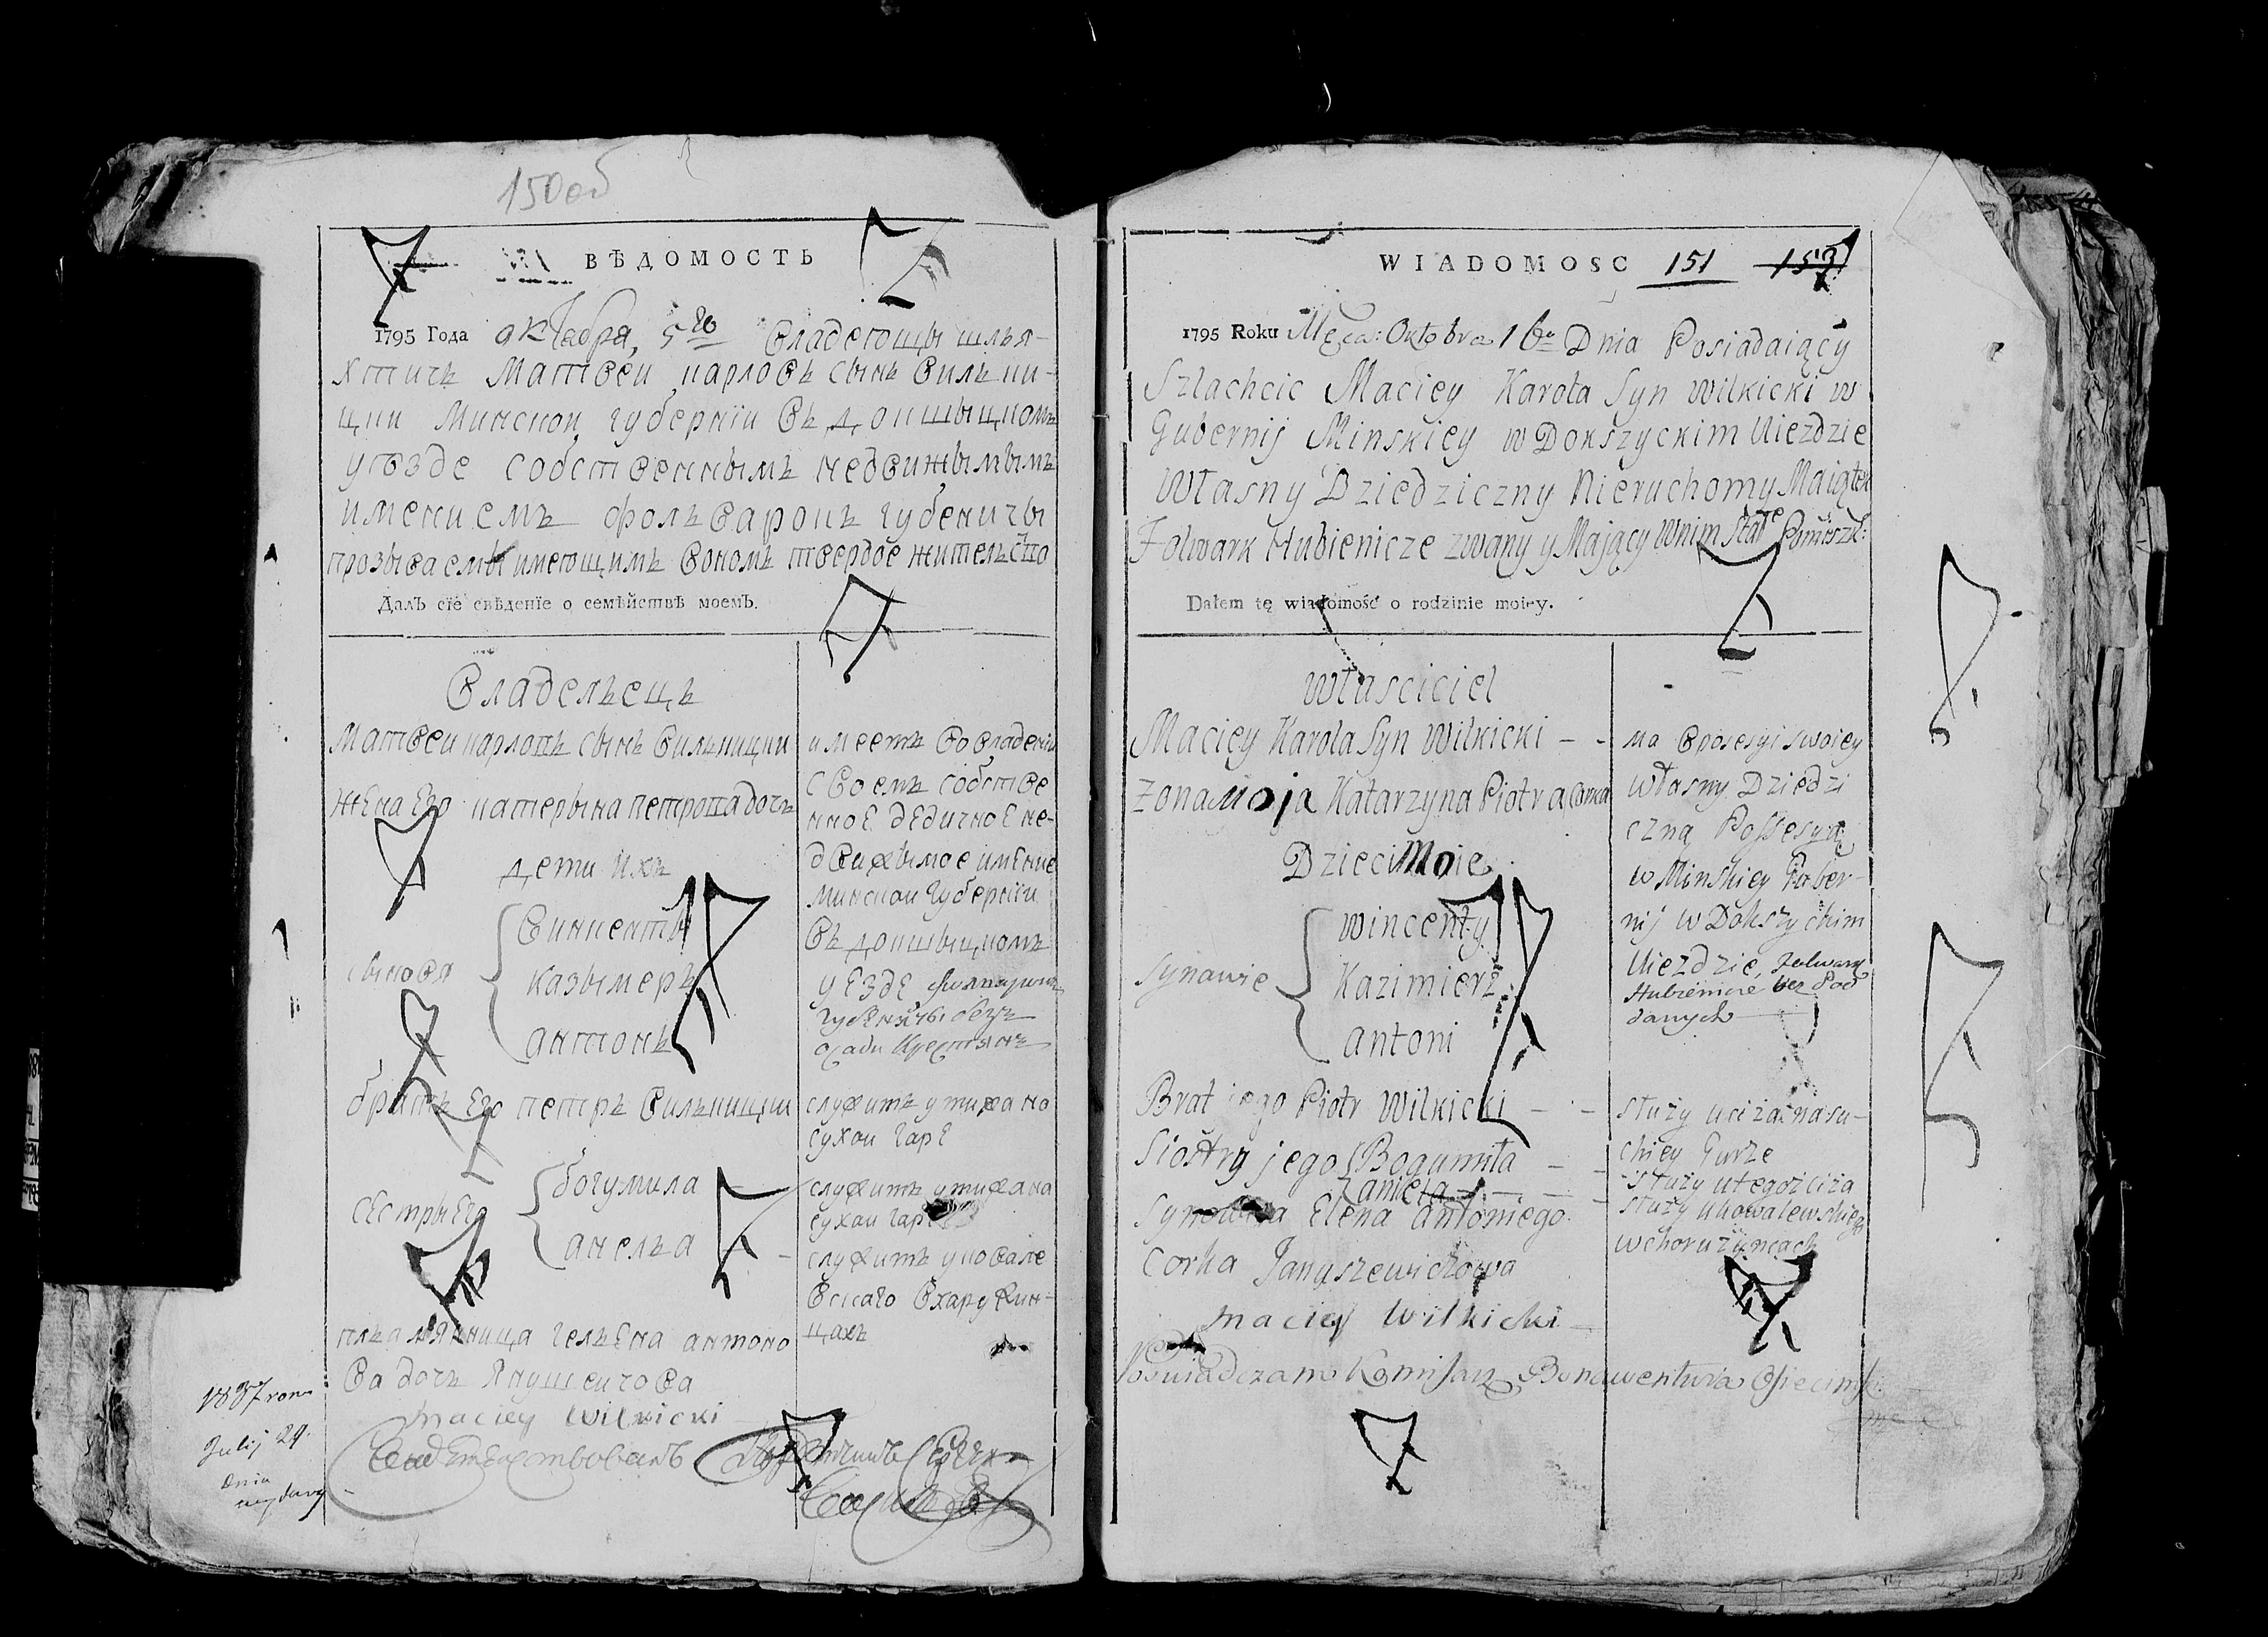 150об
ВѢДОМОСТЬ
1795 Года октебра, 5го Владеющы шлья-
хтичъ Матвеи карловъ сынъ Вилъки-
цки Минскои губернiи въ докшыцкомъ
уезде собственнымъ недвижымымъ
имениемъ фолъварокъ губеничы
прозываемы имеющимъ вономъ твердое жителъство
Далъ сїе свѣденїе о семѣйствѣ моемъ.
Владелъецъ
Матвеи карловъ сынъ Вилъкицки
жена Его катерына петрова дочъ
дети ихъ
сыновя
Винценты
казымеръ
антонъ
братъ Его петръ Вилъкицки
сестры Его
богумила
анелъа
племянница гелъена антоно
ва дочъ Янушевичова
Maciey Wilkicki
имеетъ во владени
своемъ собстве
нное дедичное не-
движымое имение
Минскои губернiи
въ докшыцкомъ
уезде фолварокъ
губеничы безъ
крестянъ
служитъ у тижа на
сухои гаре
служитъ у тижа на
сухои гаре
служитъ у ковале
вскаго вхаружин-
цахъ
1837 roku
Julij 29.
dnia
wydany
WIADOMOSC 151 153
1795 Roku Męca: Oktobra 16o Dnia Posiadaiący
Szlachcic Maciey Karola Syn Wilkicki w
Gubernij Minskiey w Dokszyckim Uiezdzie
Własny Dziedziczny Nieruchomy Maiątek
Folwark Hubienicze zwany y Mający Wnim Stałe Pomieszk:
Dałem tę wiadomość o rodzinie moiey.
Własciciel
Maciey Karola Syn Wilkicki
Zona Moja Katarzyna Piotra Corka
Dzieci Moie
Synowie
Wincenty
Kazimierz
Antoni
Brat jego Piotr Wilkicki
Siostry jego Bogumiła
Aniela
Synowica Elena Antoniego
Corka Januszewiczowa
Maciey Wilkicki
Poswiadczam Komisarz Bonawentura
ma w posesyi swoiey
Własny Dziedzi
czną Possesyą
w Minskiey Guber-
nij w Dokszyckim
Uiezdzie, Folwark
Hubienicze bez Pod
danych
służy u ciża na su-
chiey Gurze
służy u tegoż ciża
służy u Kowalewskiego
w choruzyncach